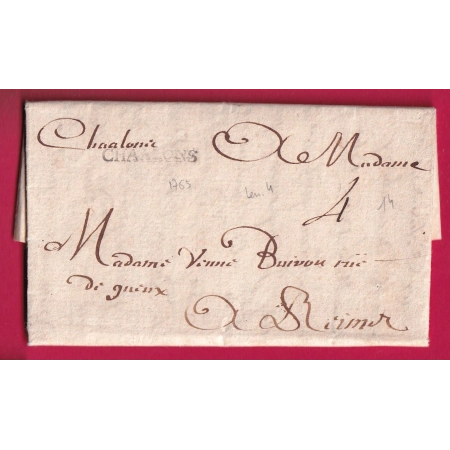 Chaalons A Madame
CHAALONS
1765 Len. 4 4 14
Madame Venue Buirou rue
de gueux
A Reims